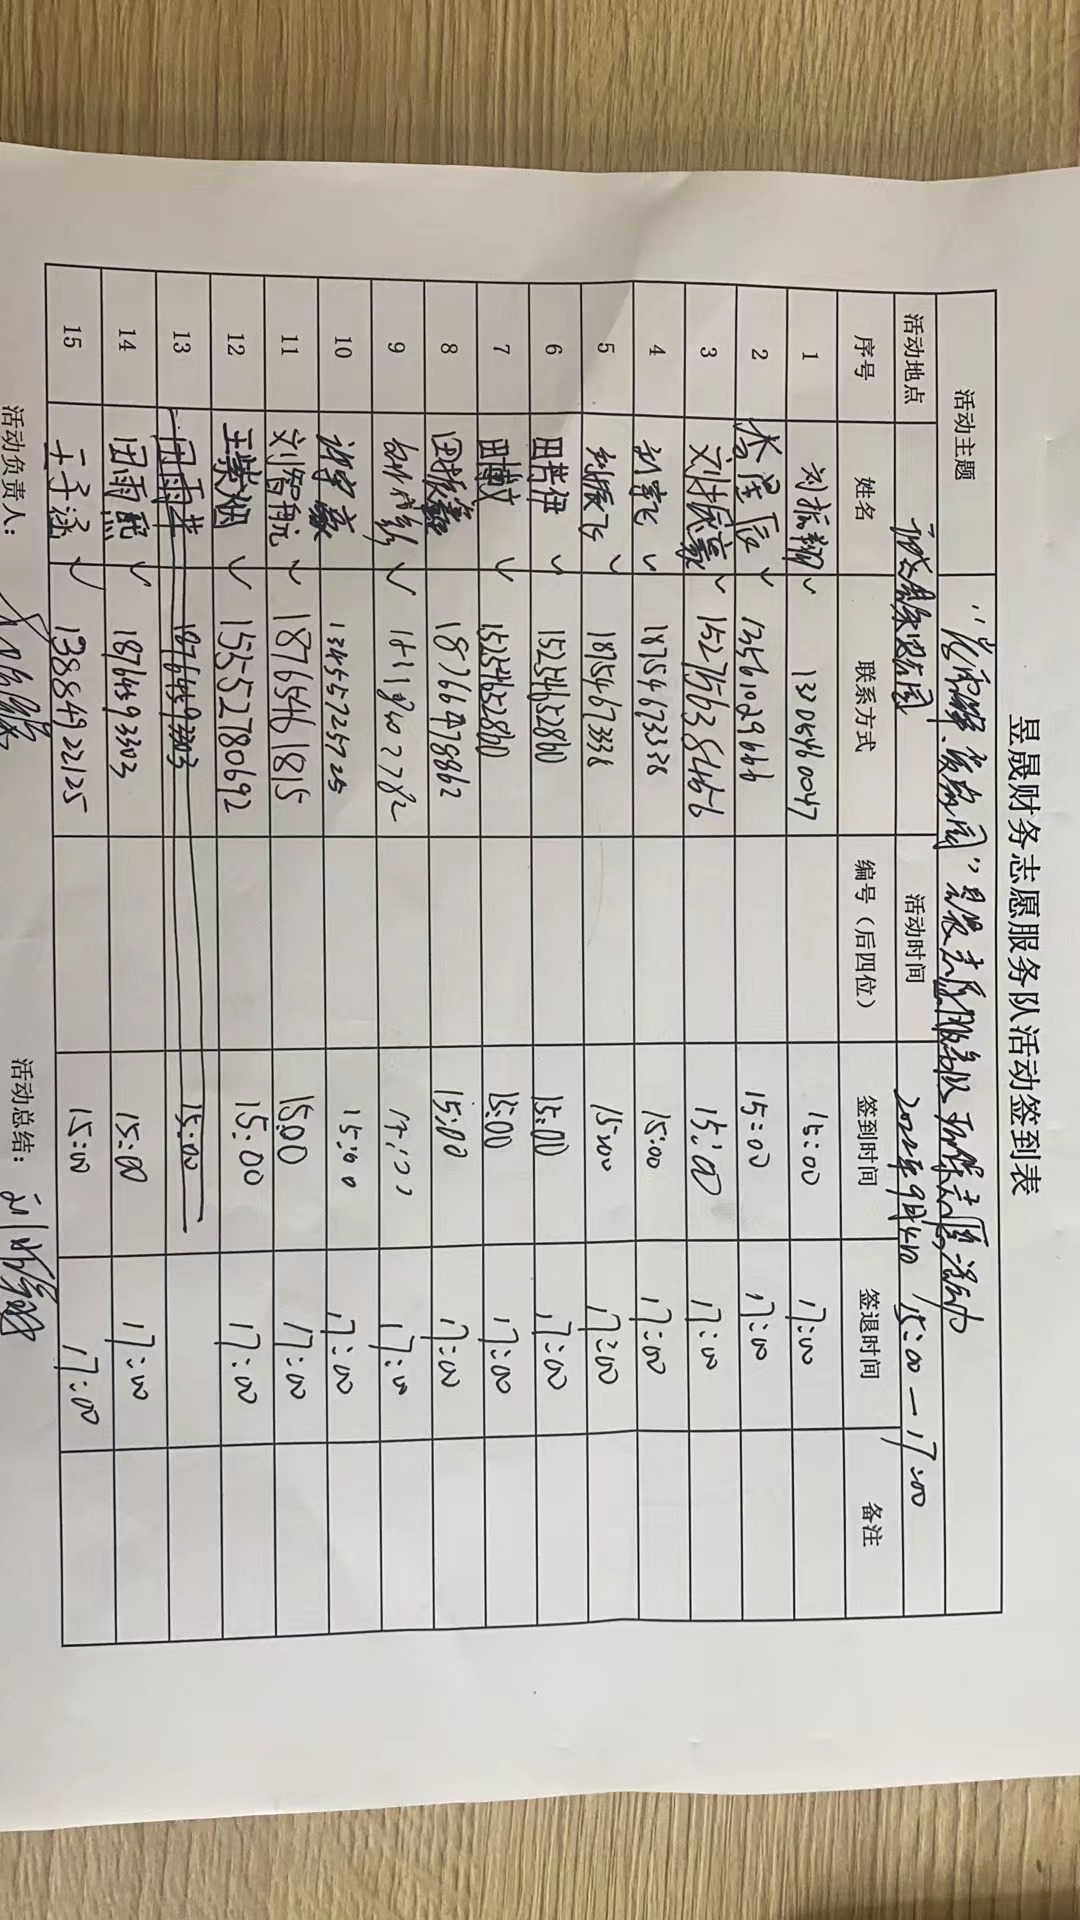 昱晟财务志愿服务队活动签到表
活动主题 志愿服务队 环保志愿活动
活动地点 活动时间 2022年9月4日 15:00—17:00
序号 姓名 联系方式 编号（后四位） 签到时间 签退时间 备注
1 刘振翔 ✓ 13205460047 15:00 17:00
2 ✓ 13561029666 15:00 17:00
3 刘振豪 ✓ 15275638456 15:00 17:00
4 ✓ 18754673338 15:00 17:00
5 ✓ 18754673338 15:00 17:00
6 田若伊 ✓ 15254652860 15:00 17:00
7 田博文 ✓ 15254652860 15:00 17:00
8 田振鑫 18766478862 15:00 17:00
9 ✓ 17:00
10 13455725725 15:00 17:00
11 刘智航 ✓ 18765461815 15:00 17:00
12 ✓ 15552780692 15:00 17:00
13 18764593303 15:00
14 田雨熙 ✓ 18764593303 15:00 17:00
15 王子涵 ✓ 13884922125 15:00 17:00
活动负责人： 活动总结：